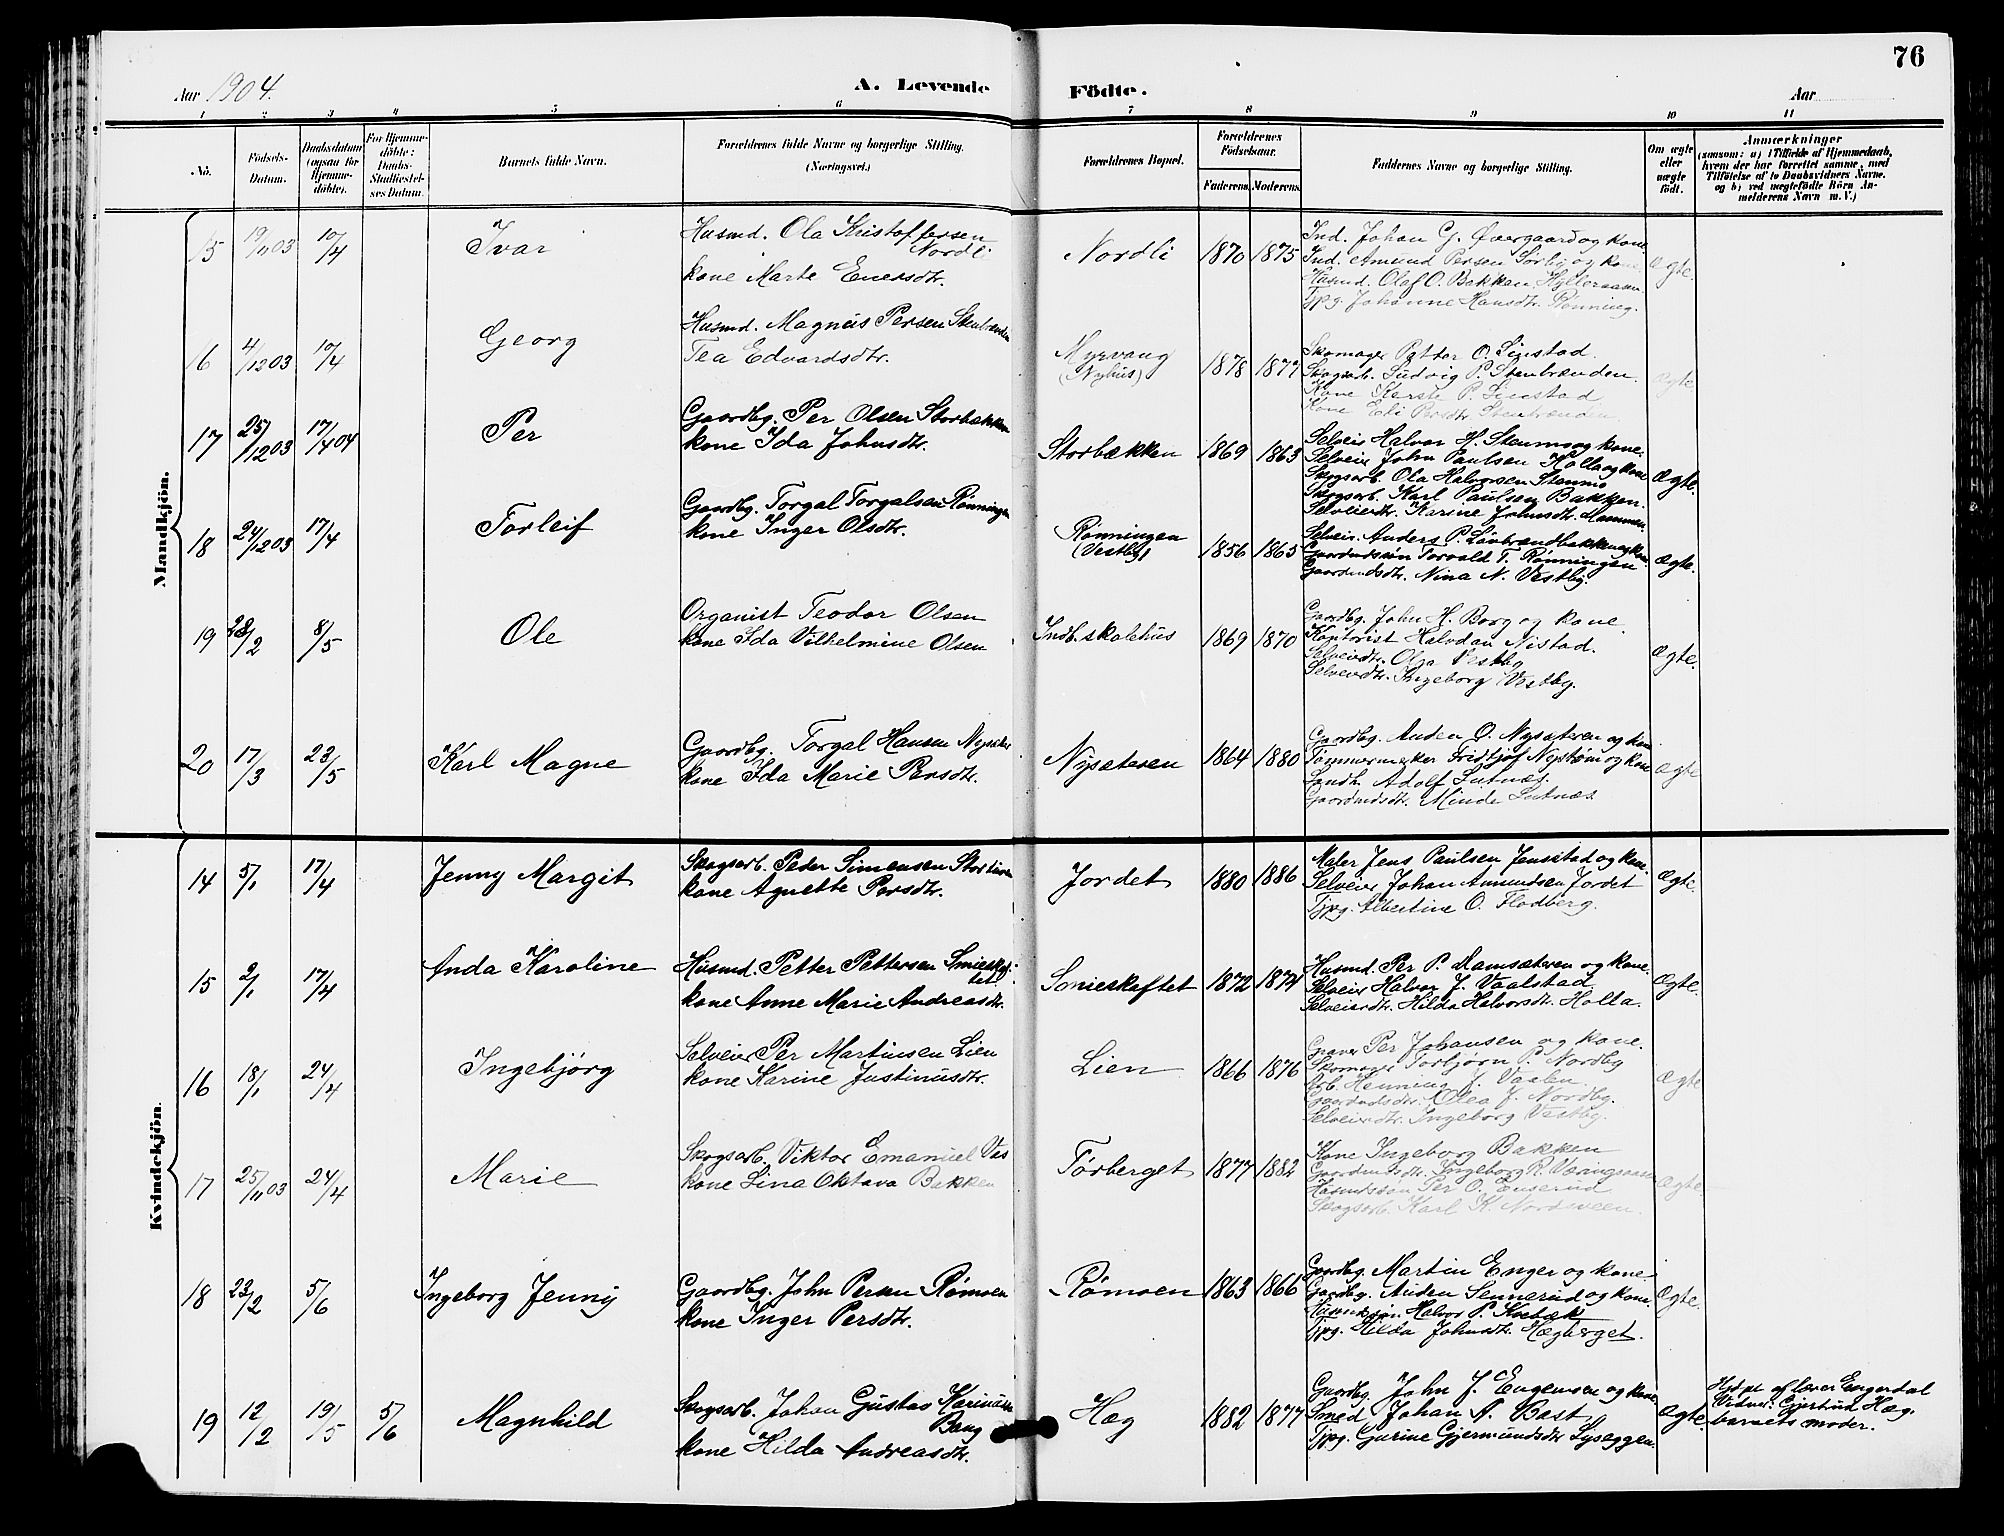 76
Aar 1904.
A. Levende Födte.
Aar
1 2 3 4 5 6 7 8 9 10 11
No.
Födsels-Datum.
Daabsdatum (ogsaa for Hjemme-döbte).
For Hjemme-döbte: Daabs-Stadfæstel-ses Datum.
Barnets fulde Navn.
Forældrenes fulde Navne og borgerlige Stilling. (Næringsvei.)
Forældrenes Bopæl.
Forældrenes Födselsaar.
Faderens. Moderens.
Faddernes Navne og borgerlige Stilling.
Om ægte eller uægte födt.
Anmærkninger
(saasom: a) i Tilfælde af Hjemmedaab,
hvem der har forrettet samme, med
Tilföielse af to Daabsvidners Navne.
og b) ved uægtefödte Börn An-
melderens Navn m. V.)
Mandkjön.
15 19/11 03 10/4 Ivar
Husmd. Ola Kristoffersen
Nordli
kone Marte Enersdtr.
Nordli 1870 1875
Ind. Johan G. Øvergaard og kone
Ind. Amund Persen Sørli og kone
Husmd. Olaf O. Bakken Hylleraasen
Tjpg. Johanne Hansdtr. Rønning.
Ægte.
16 4/12 03 10/4 Georg
Husmd. Magnus Persen Stenbrænden
Tea Edvardsdtr.
Myrvang
(Nyhus)
1878 1877
Skomager Petter O. Linstad
Skogsarb. Ludvig P. Stenbrænden.
Kone Kerste P. Linstad
Kone Eli Persdtr. Stenbrænden
Ægte
17 25/12 03 17/4 04 Per
Gaardbg. Per Olsen Storbækken
kone Ida Johnsdtr.
Storbækken 1869 1863
Selveier Halvor H. Stenmo og kone.
Selveier John Paulsen Holla og kone
Skogsarb. Ola Halvorsen Stenmo
Skogsarb. Karl Paulsen Bakken.
Selveierdtr. Karine Johnsdtr.
Ægte.
18 24/12 03 17/4 Torleif
Gaardbg. Torgal Torgalsen Rønningen
kone Inger Olsdtr.
Rønningen
(Vestby)
1856 1865
Selveier. Anders P. Løvbrændbakken og kone
Gaardmdssøn Torvald T. Rønningen
Gaardmdsdtr. Nina N. Vestby.
Ægte.
19 28/2 8/5 Ole
Organist Teodor Olsen
kone Ida Vilhelmine Olsen
Indb. skolehus 1869 1870
Gaardbg. John H. Borg og kone.
Kontorist Halvdan Nistad.
Selveierdtr. Olga Vestby
Selveierdtr. Ingeborg Vestby.
Ægte.
20 17/3 23/5 Karl Magne
Gaardbg. Torgal Hansen Nysæter
kone Ida Marie Persdtr.
Nysæteren 1864 1880
Gaardbg. Auden O. Nysæteren og kone
Tømmermerker Fridtjof Nystrøm og kone
Landh. Adolf Lutnæs.
Gaardmdsdtr. Minda Lutnæs
Ægte
Kvindekjön.
14 5/1 17/4 Jenny Margit
Skogsarb. Peder Simensen Storlien
kone Agnette Persdtr.
Jordet 1880 1886
Maler Jens Paulsen Jensstad og kone.
Selveier Johan Amundsen Jordet
Tjpg. Albertine O. Flodberg.
Ægte
15 2/1 17/4 Anda Karoline
Husmd. Petter Pettersen Smieskaf-
tet
kone Anne Marie Andreasdtr.
Smieskaftet 1872 1874
Husmd. Per P. Damsæteren og kone.
Selveier Halvor J. Vaalstad
Selveierdtr. Hilda Halvorsdtr. Holla.
Ægte.
16 18/1 24/4 Ingebjørg
Selveier Per Martinsen Lien
kone Karine Justinusdtr.
Lien 1866 1876
Graver Per Johansen og kone.
Skomager Torbjørn P. Nordby
Arb. Henning J. Vaalen.
Gaardmdsdtr. Olea J. Nordby.
Selveierdtr. Ingeborg Vestby.
Ægte
17 25/11 03 24/4 Marie
Skogsarb. Viktor Emanuel Vas
kone Lina Oktava Bakken
Tørberget 1877 1882
Kone Ingeborg Bakken
Gaardmdsdtr. Ingeborg R.
Husmdssøn Per O. Enserud
Skogsarb. Karl K. Nordsveen.
Ægte
18 23/2 5/6 Ingeborg Jenny
Gaardbg. John Persen Rømoen
kone Inger Persdtr.
Rømoen 1863 1866
Gaardbg. Martin Enger og kone
Gaardbg. Auden Sennerud og kone.
Husmdssøn Halvor P. Kvebæk
Tjpg. Hilda Johnsdtr. Hægberget.
Ægte.
19 12/2 19/5 5/6 Magnhild
Skogsarb. Johan Gustav Karinusen
Bang
kone Hilda Andreasdtr.
Hæg 1882 1877
Gaardbg. John J. Engensen og kone
Smed Johan A. Bast
Tjpg. Gurine Gjermundsdtr. Lyseggen.
Ægte.
Hjdpt af lærer Engerdal
Vidner: Gjertrud Hæg.
barnets moder.